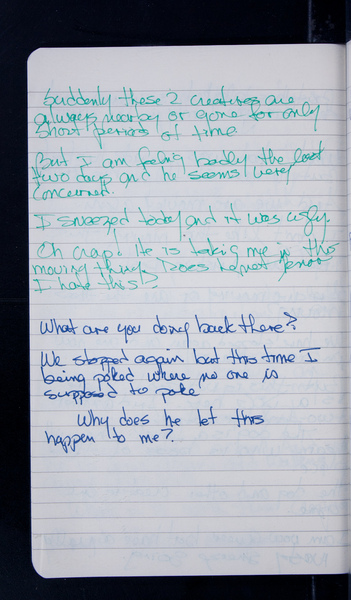 Suddenly these 2 creatures are
always nearby or gone for only
short periods of time.
But I am feeling badly the last
two days and he seems very
concerned.
I sneezed today and it was ugly.
Oh crap! He is taking me in this
moving thing. Does he not know
I hate this!?
What are you doing back there?
We stopped again but this time I
being poked where no one is
supposed to poke
Why does he let this
happen to me?